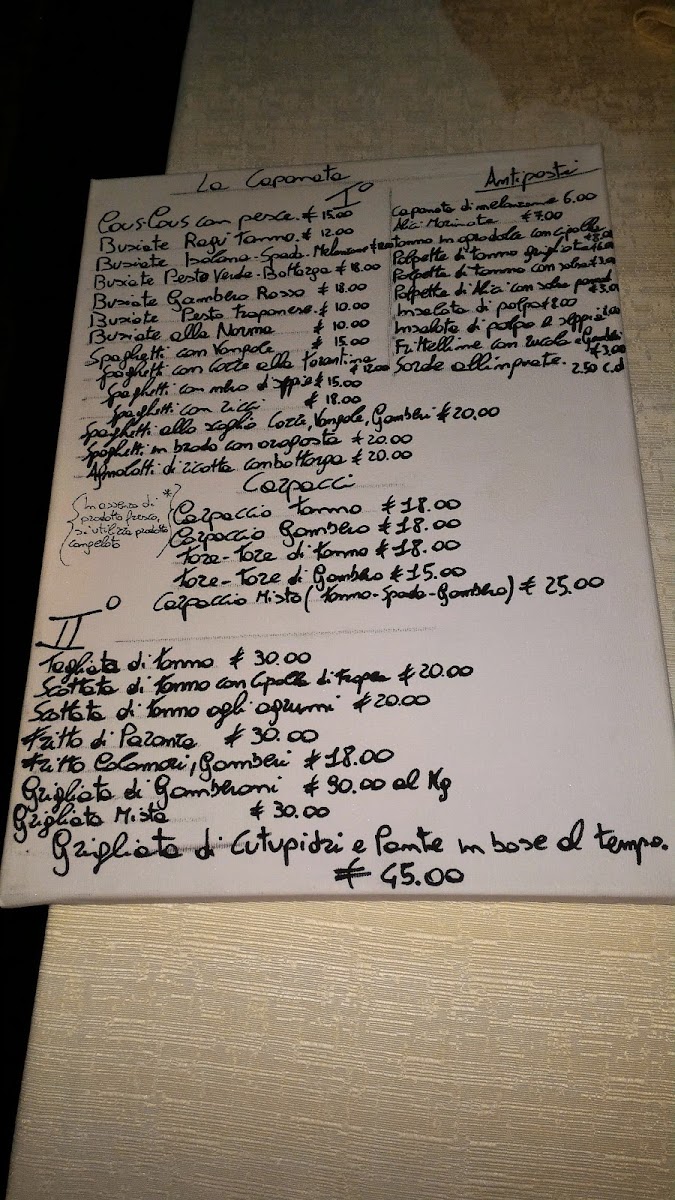 La Caponata
I°
Cous-Cous con pesce. € 15.00
Busiate Ragù Tonno. € 12.00
Busiate Isolana-Spada-Melanzane €
Busiate Pesto Verde-Bottarga € 18.00
Busiate Gambero Rosso € 18.00
Busiate Pesto Trapanese. € 10.00
Busiate alla Norma € 10.00
Spaghetti con Vongole € 15.00
Spaghetti con Cozze alla Tarantina € 12.00
Spaghetti con nero di seppie € 15.00
Spaghetti con ricci € 18.00
Spaghetti allo scoglio Cozze, Vongole, Gamberi € 20.00
Spaghetti in brodo con aragosta € 20.00
Agnolotti di ricotta con bottarga € 20.00
Antipasti
Caponata di melanzane 6.00
Alici Marinate € 7.00
tonno in agrodolce con cipolla
Polpette di tonno grigliate
Polpette di tonno con salsa
Polpette di Alici con salsa
Insalata di polpo € 8.00
Insalata di polpo e seppia
Frittelline con rucola e Gamberi
€ 3.00
Sarde allinguate. 2.50 c.d
Carpacci
Carpaccio Tonno € 18.00
Carpaccio Gambero € 18.00
Tare-Tare di tonno € 18.00
Tare-Tare di Gambero € 15.00
Carpaccio Misto (Tonno-Spada-Gambero) € 25.00
*
In assenza di
prodotto fresco,
si utilizza prodotto
congelato
II°
Tagliata di Tonno € 30.00
Scottata di Tonno con Cipolla di Tropea € 20.00
Scottata di Tonno agli agrumi € 20.00
Fritto di Paranza € 30.00
Fritto Calamari, Gamberi € 18.00
Grigliata di Gamberoni € 90.00 al Kg
Grigliata Mista € 30.00
Grigliata di Cutupidri e Pante in base al tempo.
€ 45.00